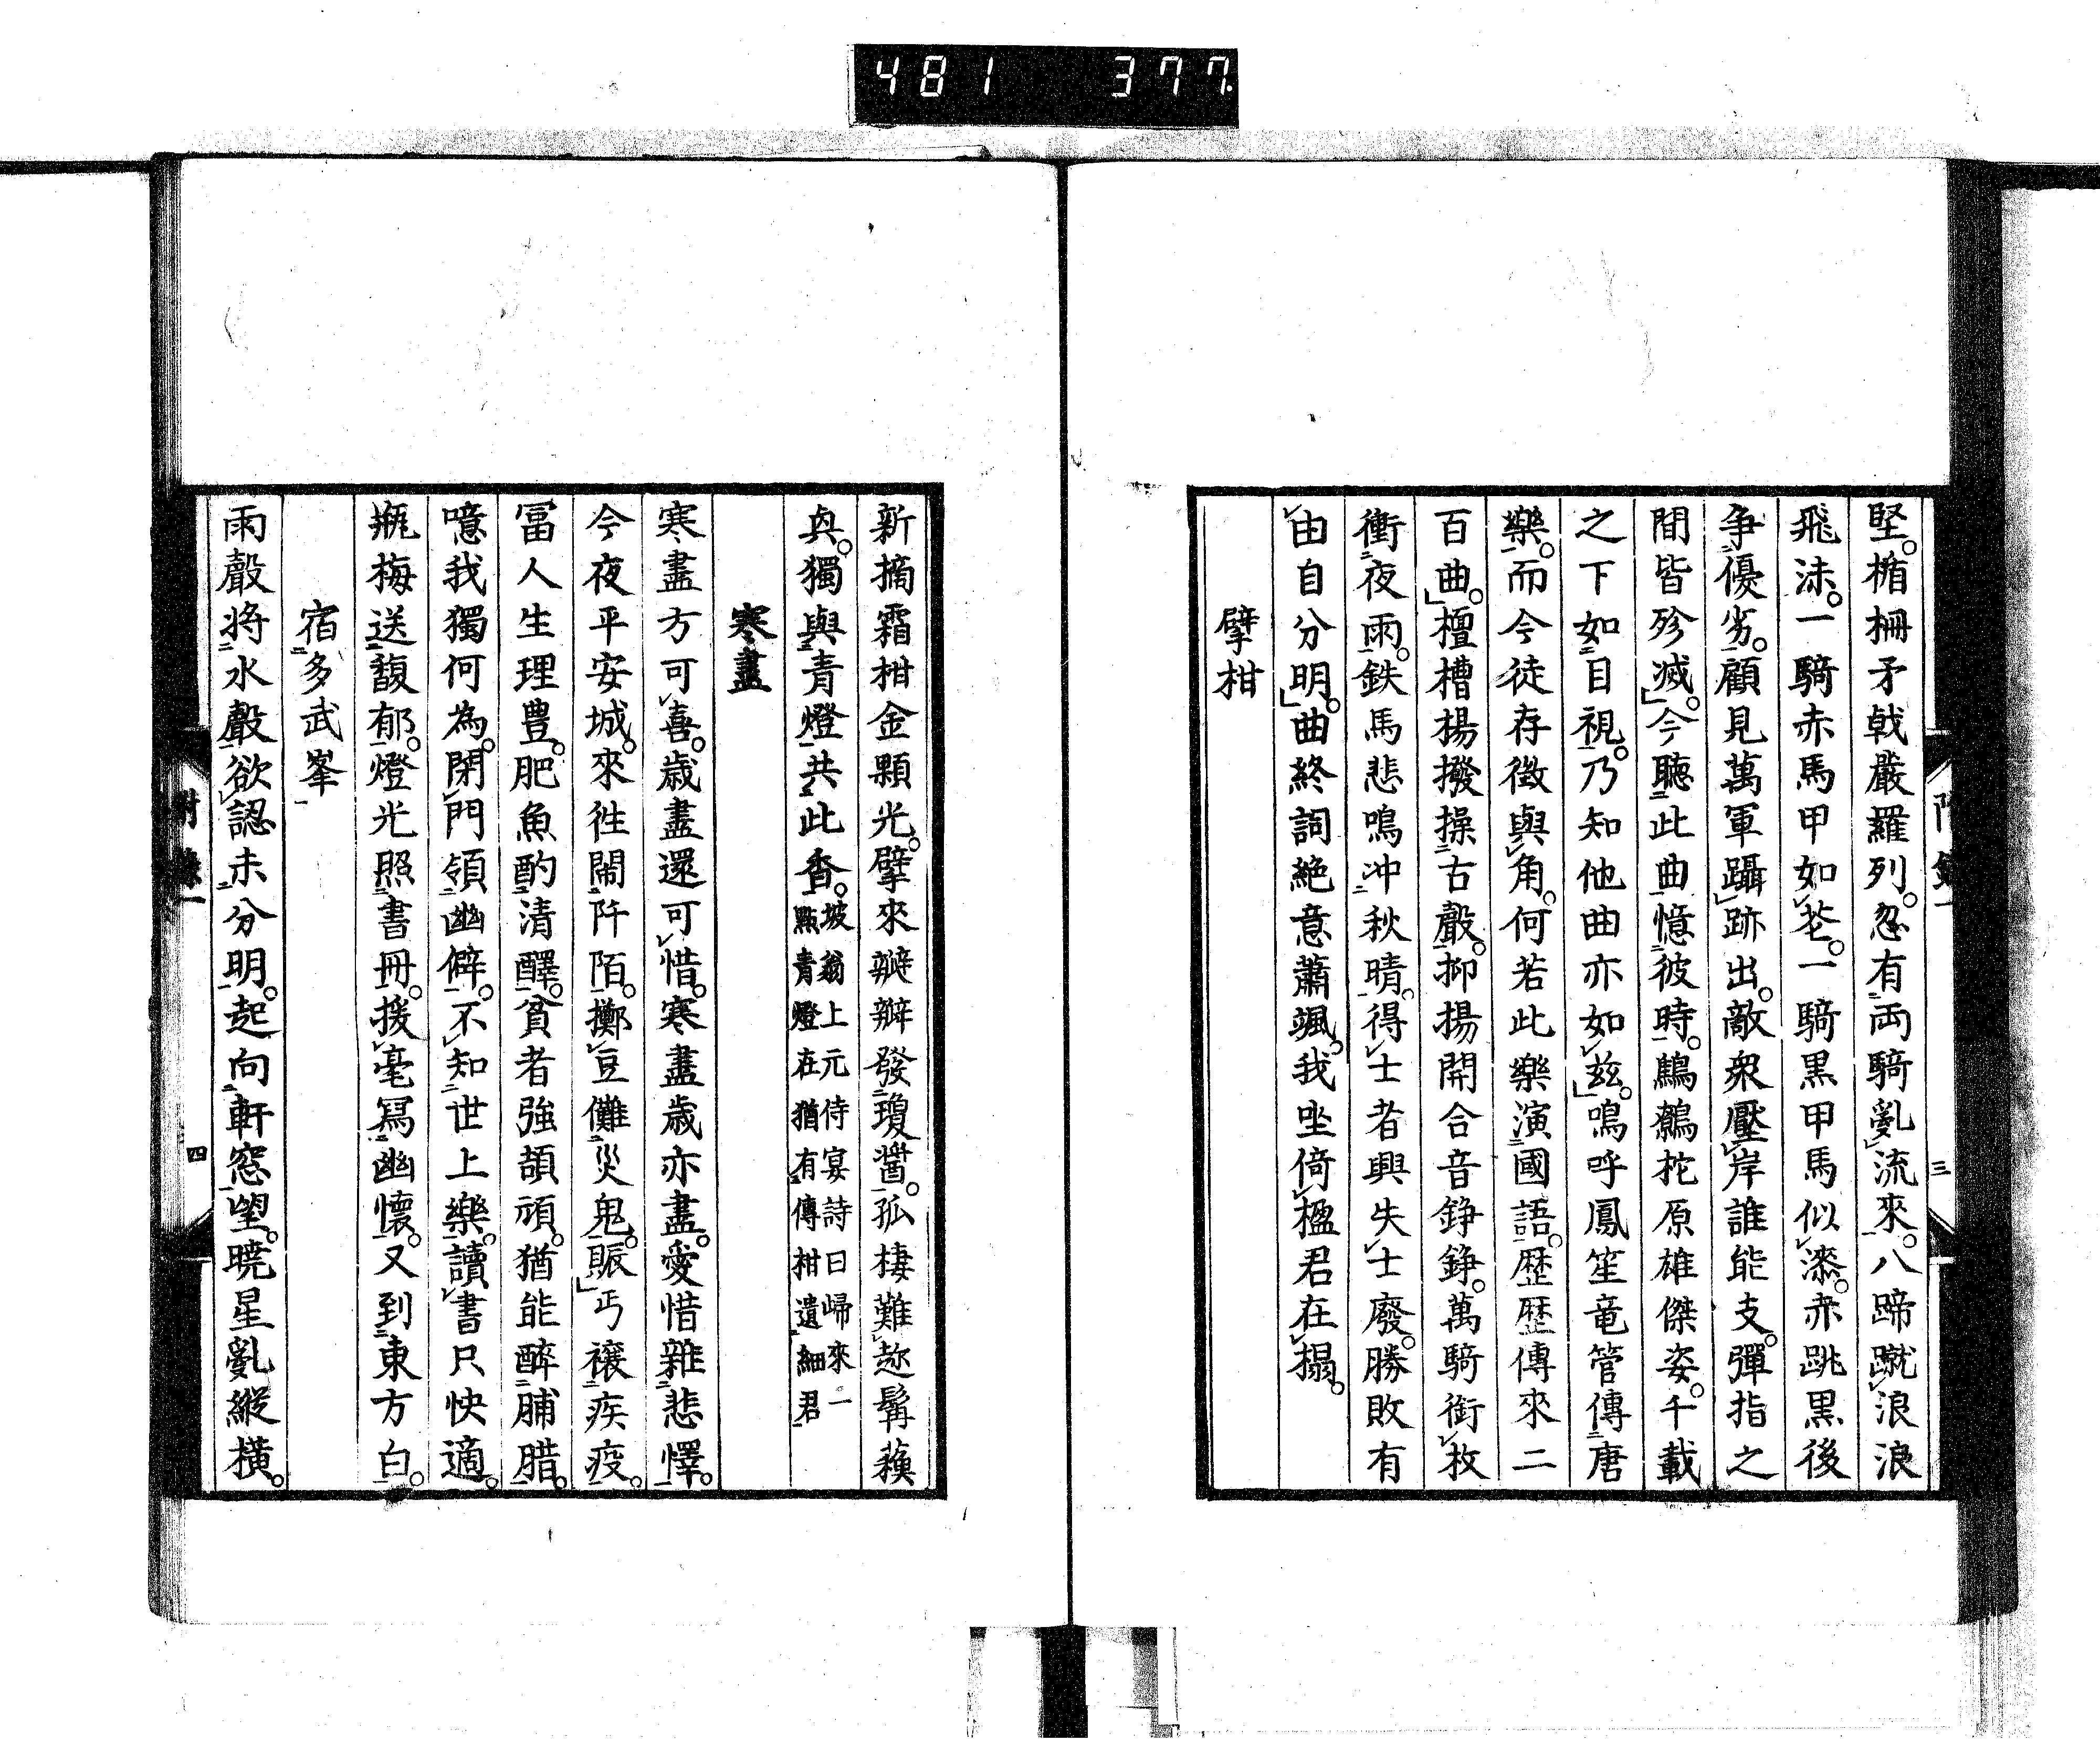 481 377.
堅。楯柵矛戟嚴羅列。忽有両騎亂流來。八蹄蹴浪浪
飛沫。一騎赤馬甲如花。一騎黒甲馬似漆。赤跳黒後
争優劣。顧見萬軍躡跡出。敵衆壓岸誰能支。彈指之
間皆殄滅。今聽此曲憶彼時。鷓鴣柁原雄傑姿。千載
之下如目視。乃知他曲亦如玆。鳴呼鳳笙竜管傳唐
樂。而今徒存徴與角。何若此樂演國語。歴歴傳來二
百曲。檀槽揚撥操古聲。抑揚開合音錚錚。萬騎銜枚
衝夜雨。鉄馬悲鳴冲秋晴。得士者興失士廢。勝敗有
由自分明。曲終詞絶意蕭颯。我坐倚楹君在搨。
擘柑
附錄一
三
新摘霜柑金顆光。擘來瓣瓣發瓊醤。孤棲難趂鬅蘓
奐。獨與青燈共此香。坡翁上元侍宴詩曰歸來一
點青燈在猶有傳柑遺細君
寒盡
寒盡方可喜。歳盡還可惜。寒盡歳亦盡。愛惜雜悲懌。
今夜平安城。來徃閙阡陌。擲豆儺災鬼。賑丐禳疾疫。
冨人生理豊。肥魚酌清醳。貧者強頡頏。猶能醉脯腊。
噫我獨何為。閉門領幽僻。不知世上樂。讀書只快適。
瓶梅送馥郁。燈光照書冊。援毫冩幽懐。又到東方白。
宿多武峯
雨聲将水聲欲認未分明。起向軒窓望。曉星亂縱横。
附錄一
四